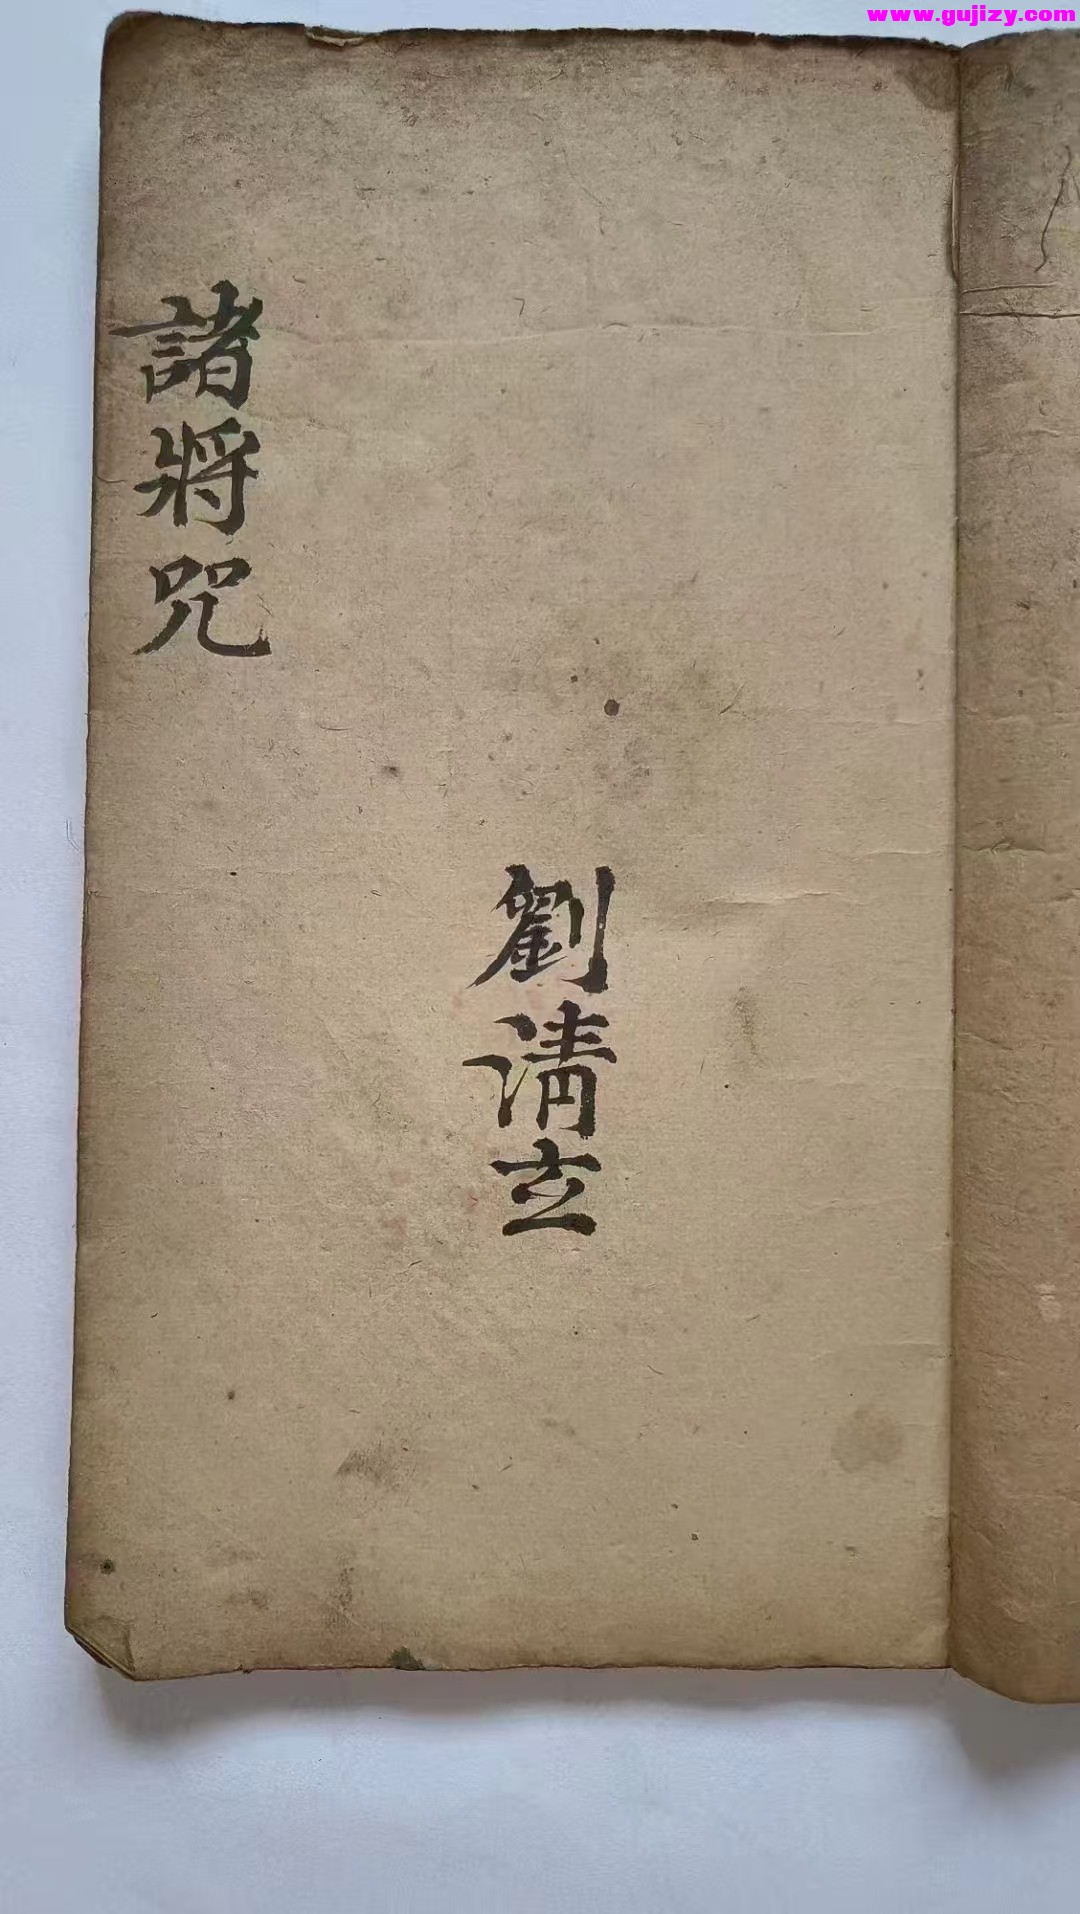 www.gujizy.com
諸將咒
劉清玄